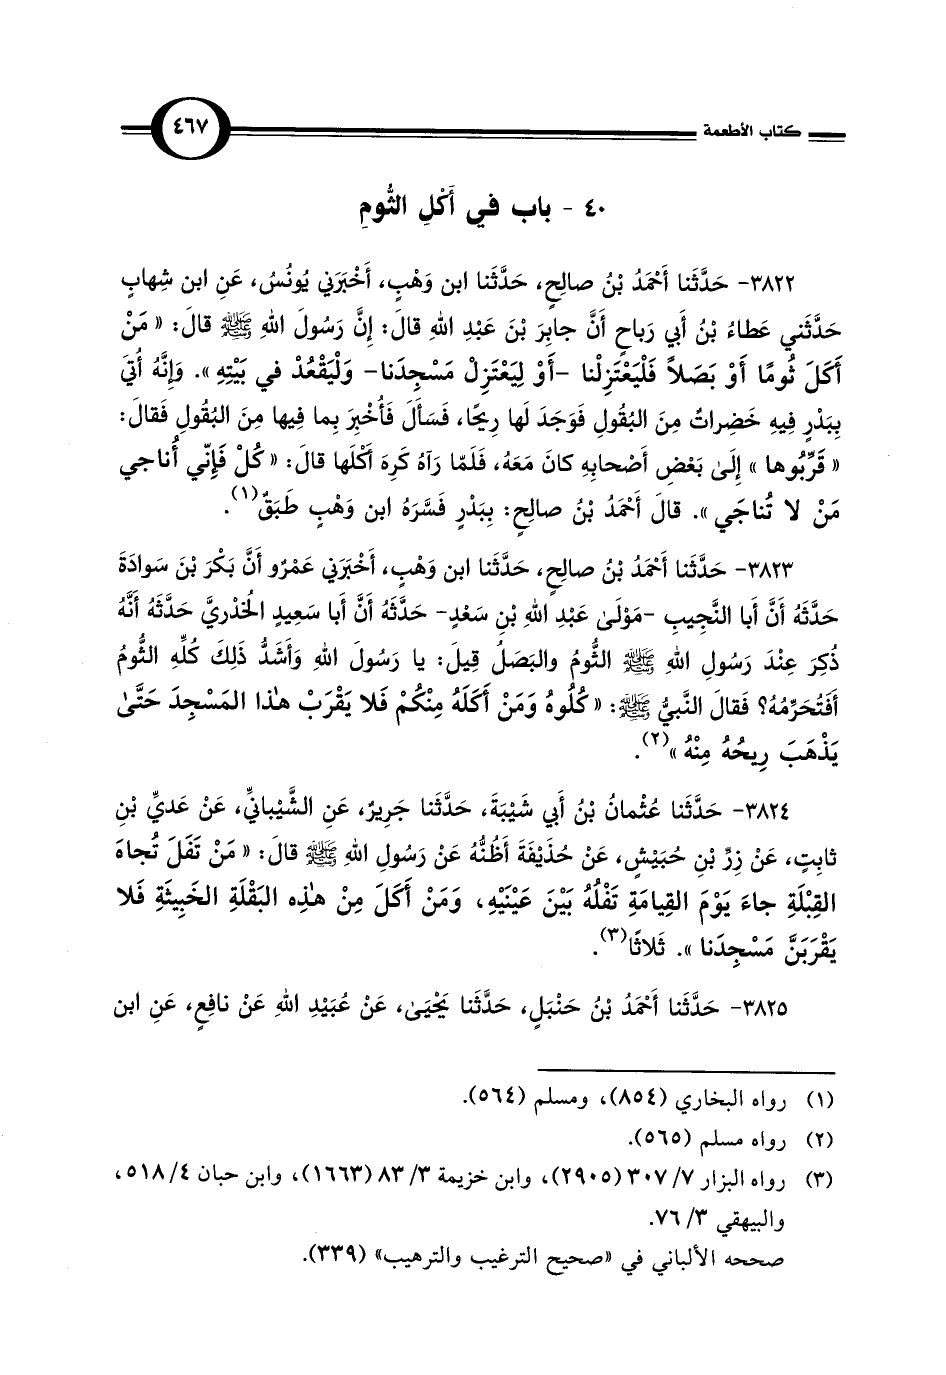 كتاب الأطعمة ٤٦٧
٤٠ - باب في أَكْلِ الثُّومِ
٣٨٢٢- حَدَّثَنا أَحْمَدُ بْنُ صالِحٍ، حَدَّثَنا ابن وَهْبٍ، أَخْبَرَني يُونُسُ، عَنِ ابن شِهابٍ
حَدَّثَني عَطاءُ بْنُ أَبي رَباحٍ أَنَّ جابِرَ بْنَ عَبْدِ اللهِ قالَ: إِنَّ رَسُولَ اللهِ ﷺ قالَ: « مَنْ
أَكَلَ ثُومًا أَوْ بَصَلاً فَلْيَعْتَزِلْنا -أَوْ لِيَعْتَزِلْ مَسْجِدَنا- وَلْيَقْعُدْ في بَيْتِهِ ». وَإِنَّهُ أُتِيَ
بِبَدْرٍ فِيهِ خَضِراتٌ مِنَ البُقُولِ فَوَجَدَ لَها رِيحًا، فَسَأَلَ فَأُخْبِرَ بِما فِيها مِنَ البُقُولِ فَقالَ:
« قَرِّبُوها » إِلَىٰ بَعْضِ أَصْحابِهِ كانَ مَعَهُ، فَلَمّا رَآهُ كَرِهَ أَكْلَها قالَ: « كُلْ فَإِنّي أُناجي
مَنْ لا تُناجَي ». قالَ أَحْمَدُ بْنُ صالِحٍ: بِبَدْرٍ فَسَّرَهُ ابن وَهْبٍ طَبَقٌ(١).
٣٨٢٣- حَدَّثَنا أَحْمَدُ بْنُ صالِحٍ، حَدَّثَنا ابن وَهْبٍ، أَخْبَرَني عَمْرٌو أَنَّ بَكْرَ بْنَ سَوادَةَ
حَدَّثَهُ أَنَّ أَبا النَّجِيبِ -مَوْلَىٰ عَبْدِ اللهِ بْنِ سَعْدٍ- حَدَّثَهُ أَنَّ أَبا سَعِيدٍ الخُدْريَّ حَدَّثَهُ أَنَّهُ
ذُكِرَ عِنْدَ رَسُولِ اللهِ ﷺ الثُّومُ والبَصَلُ قِيلَ: يا رَسُولَ اللهِ وَأَشَدُّ ذَلِكَ كُلِّهِ الثُّومُ
أَفَتُحَرِّمُهُ؟ فَقالَ النَّبيُّ ﷺ: « كُلُوهُ وَمَنْ أَكَلَهُ مِنْكُمْ فَلا يَقْرَبْ هٰذا المَسْجِدَ حَتَّىٰ
يَذْهَبَ رِيحُهُ مِنْهُ »(٢).
٣٨٢٤- حَدَّثَنا عُثْمانُ بْنُ أَبي شَيْبَةَ، حَدَّثَنا جَرِيرٌ، عَنِ الشَّيْبانيِّ، عَنْ عَديِّ بْنِ
ثابِتٍ، عَنْ زِرِّ بْنِ حُبَيْشٍ، عَنْ حُذَيْفَةَ أَظُنُّهُ عَنْ رَسُولِ اللهِ ﷺ قالَ: « مَنْ تَفَلَ تُجاهَ
القِبْلَةِ جاءَ يَوْمَ القِيامَةِ تَفْلُهُ بَيْنَ عَيْنَيْهِ، وَمَنْ أَكَلَ مِنْ هٰذِه البَقْلَةِ الخَبِيثَةِ فَلا
يَقْرَبَنَّ مَسْجِدَنا ». ثَلاثًا(٣).
٣٨٢٥- حَدَّثَنا أَحْمَدُ بْنُ حَنْبَلٍ، حَدَّثَنا يَحْيَىٰ، عَنْ عُبَيْدِ اللهِ عَنْ نافِعٍ، عَنِ ابن
(١) رواه البخاري (٨٥٤)، ومسلم (٥٦٤).
(٢) رواه مسلم (٥٦٥).
(٣) رواه البزار ٧/ ٣٠٧ (٢٩٠٥)، وابن خزيمة ٣/ ٨٣ (١٦٦٣)، وابن حبان ٤/ ٥١٨،
والبيهقي ٣/ ٧٦.
صححه الألباني في «صحيح الترغيب والترهيب» (٣٣٩).